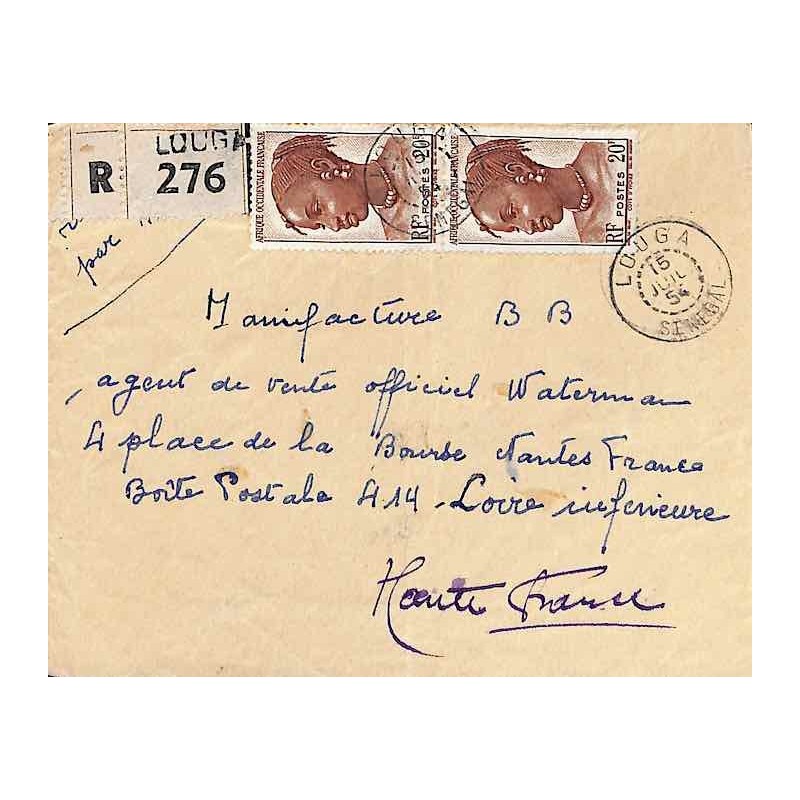 LOUGA
R 276
AFRIQUE OCCIDENTALE FRANÇAISE
20F
POSTES
RF
AFRIQUE OCCIDENTALE FRANÇAISE
20F
POSTES
RF
LOUGA
15
JUIL
54
SENEGAL
par
Manufacture B B
agent de vente officiel Waterman
4 place de la Bourse Nantes France
Boîte Postale 414 - Loire inferieure
Nantes France